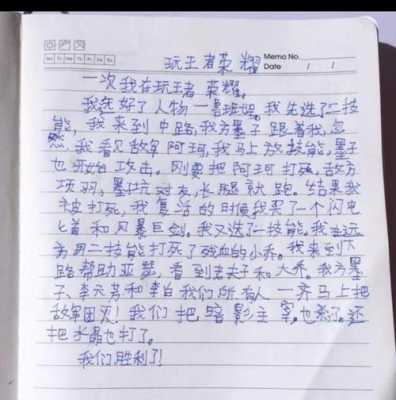 Memo No.
玩王者荣耀 Date / /
Mo Tu We Th Fr Sa Su
一次我在玩王者荣耀。
我选好了人物一
我先选了二技
能,我来到中路,我方墨子跟着我,忽
然,我看见敌军阿珂,我马上放技能,墨子
也开始攻击。刚要把阿珂打死,敌方
项羽,墨坑对友,长腿就跑。结果我
被打死,我复活的时候我买了一个闪电
匕首和风暴巨剑。我又选了一技能,我在远
方用二技能打死了残血的小乔。我来到下
路帮助亚瑟,看到老夫子和大乔。我方墨
子、李元芳和李白我们所有人一齐马上把
敌军团灭!我们把暗影主宰也杀了。还
把水晶也打了。
我们胜利了!